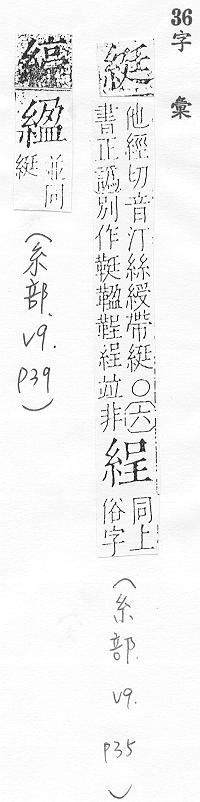 36字彙
綎
他經切音汀絲綬帶綎○〔六
書正譌別作 鞓 並非
同上
俗字
(糸部. v9. p35)
並同
綎
(糸部. v9. p39)